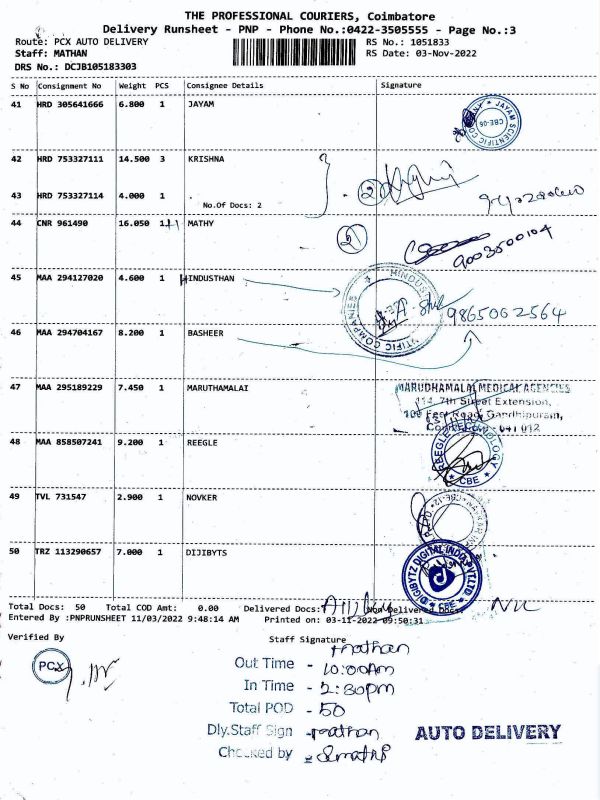 THE PROFESSIONAL COURIERS, Coimbatore
Delivery Runsheet - PNP - Phone No.:0422-3505555 - Page No.:3
Route: PCX AUTO DELIVERY RS No.: 1051833
Staff: MATHAN RS Date: 03-Nov-2022
DRS No.: DCJB105183303
S No Consignment No Weight PCS Consignee Details Signature
41 HRD 305641666 6.800 1 JAYAM
JAYAM SCIENTIFIC CBE-06
42 HRD 753327111 14.500 3 KRISHNA
43 HRD 753327114 4.000 1
No.Of Docs: 2
2
44 CNR 961490 16.050 1 MATHY
2
9003500104
45 MAA 294127020 4.600 1 HINDUSTHAN
9865062564
46 MAA 294704167 8.200 1 BASHEER
47 MAA 295189229 7.450 1 MARUTHAMALAI
MARUDHAMALAI MEDICAL AGENCIES
114, 7th Street Extension,
100 Feet Road, Gandhipuram,
48 MAA 858507241 9.200 1 REEGLE
REEGLE TECHNOLOGY CBE
49 TVL 731547 2.900 1 NOVKER
50 TRZ 113290657 7.000 1 DIJIBYTS
DIGIBYTZ DIGITAL INDO PVT LTD. CBE
Total Docs: 50 Total COD Amt: 0.00 Delivered Docs: Non Delivered Docs:
Entered By :PNPRUNSHEET 11/03/2022 9:48:14 AM Printed on: 03-11-2022 09:50:31
Verified By Staff Signature
PCX mathan
Out Time - 10:00Am
In Time - 2:30pm
Total POD - 50
Dly.Staff Sign - mathan
Checked by -
AUTO DELIVERY